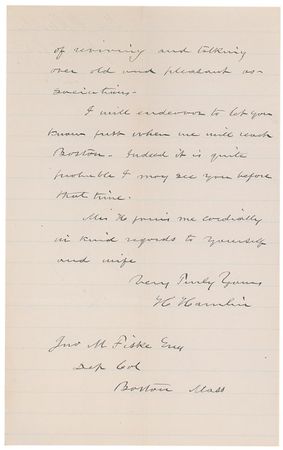 of reviving and talking
over old and pleasant as-
sociations.
I will endeavor to let you
know just when we will reach
Boston. Indeed it is quite
probable I may see you before
that time.
Mrs H joins me cordially
in kind regards to yourself
and wife
Very Truly Yours
H Hamlin
Jno M Fiske Esq
Dep Col
Boston Mass